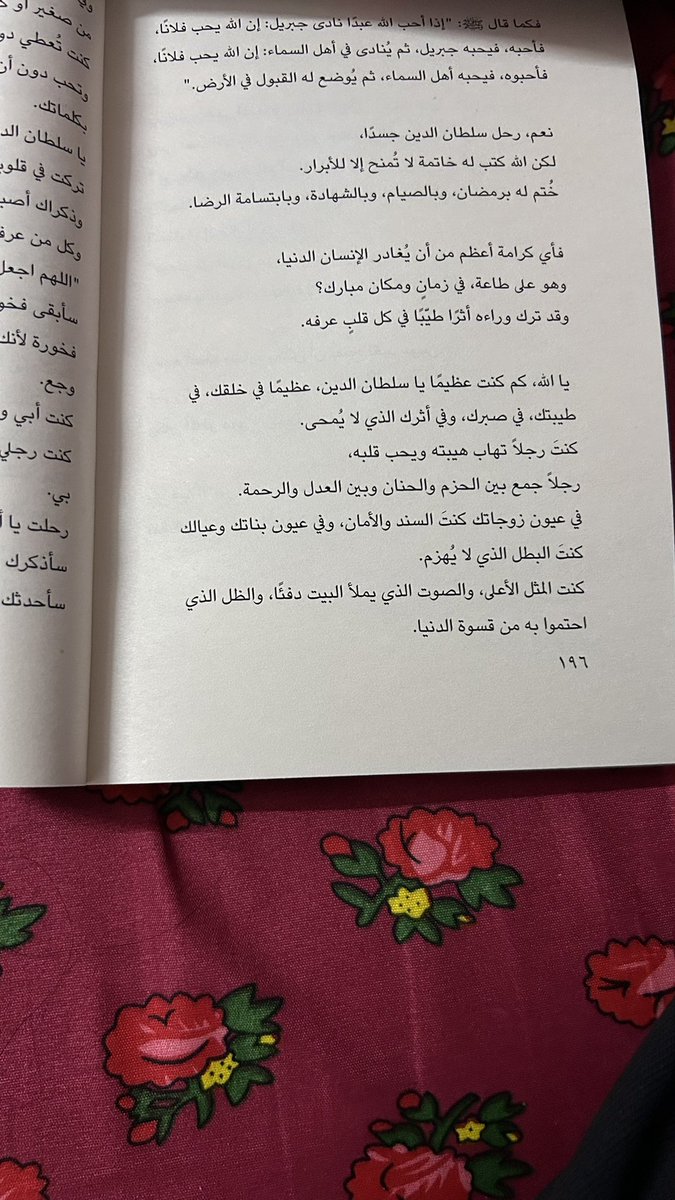 فكما قال ﷺ: "إذا أحب الله عبدًا نادى جبريل: إن الله يحب فلانًا،
فأحبه، فيحبه جبريل، ثم يُنادى في أهل السماء: إن الله يحب فلانًا،
فأحبوه، فيحبه أهل السماء، ثم يُوضع له القبول في الأرض."
نعم، رحل سلطان الدين جسدًا،
لكن الله كتب له خاتمة لا تُمنح إلا للأبرار.
خُتم له برمضان، وبالصيام، وبالشهادة، وبابتسامة الرضا.
فأي كرامة أعظم من أن يُغادر الإنسان الدنيا،
وهو على طاعة، في زمانٍ ومكان مبارك؟
وقد ترك وراءه أثرًا طيّبًا في كل قلبٍ عرفه.
يا الله، كم كنت عظيمًا يا سلطان الدين، عظيمًا في خلقك، في
طيبتك، في صبرك، وفي أثرك الذي لا يُمحى.
كنتَ رجلاً تهاب هيبته ويحب قلبه،
رجلاً جمع بين الحزم والحنان وبين العدل والرحمة.
في عيون زوجاتك كنتَ السند والأمان، وفي عيون بناتك وعيالك
كنتَ البطل الذي لا يُهزم.
كنت المثل الأعلى، والصوت الذي يملأ البيت دفئًا، والظل الذي
احتموا به من قسوة الدنيا.
١٩٦
من صغير أو
كنت تُعطي
وتحب دون أن
بكلماتك.
يا سلطان
تركت في
وذكراك
وكل من
"اللهم اجعل
سأبقى
فخورة لأنك
وجع.
كنت أبي و
كنت رجلي
بي.
رحلت يا
سأذكرك
سأحدثك